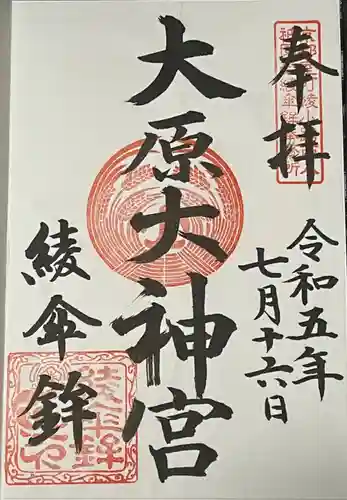 奉拝
令和五年
七月十六日
大原大神宮
綾傘鉾